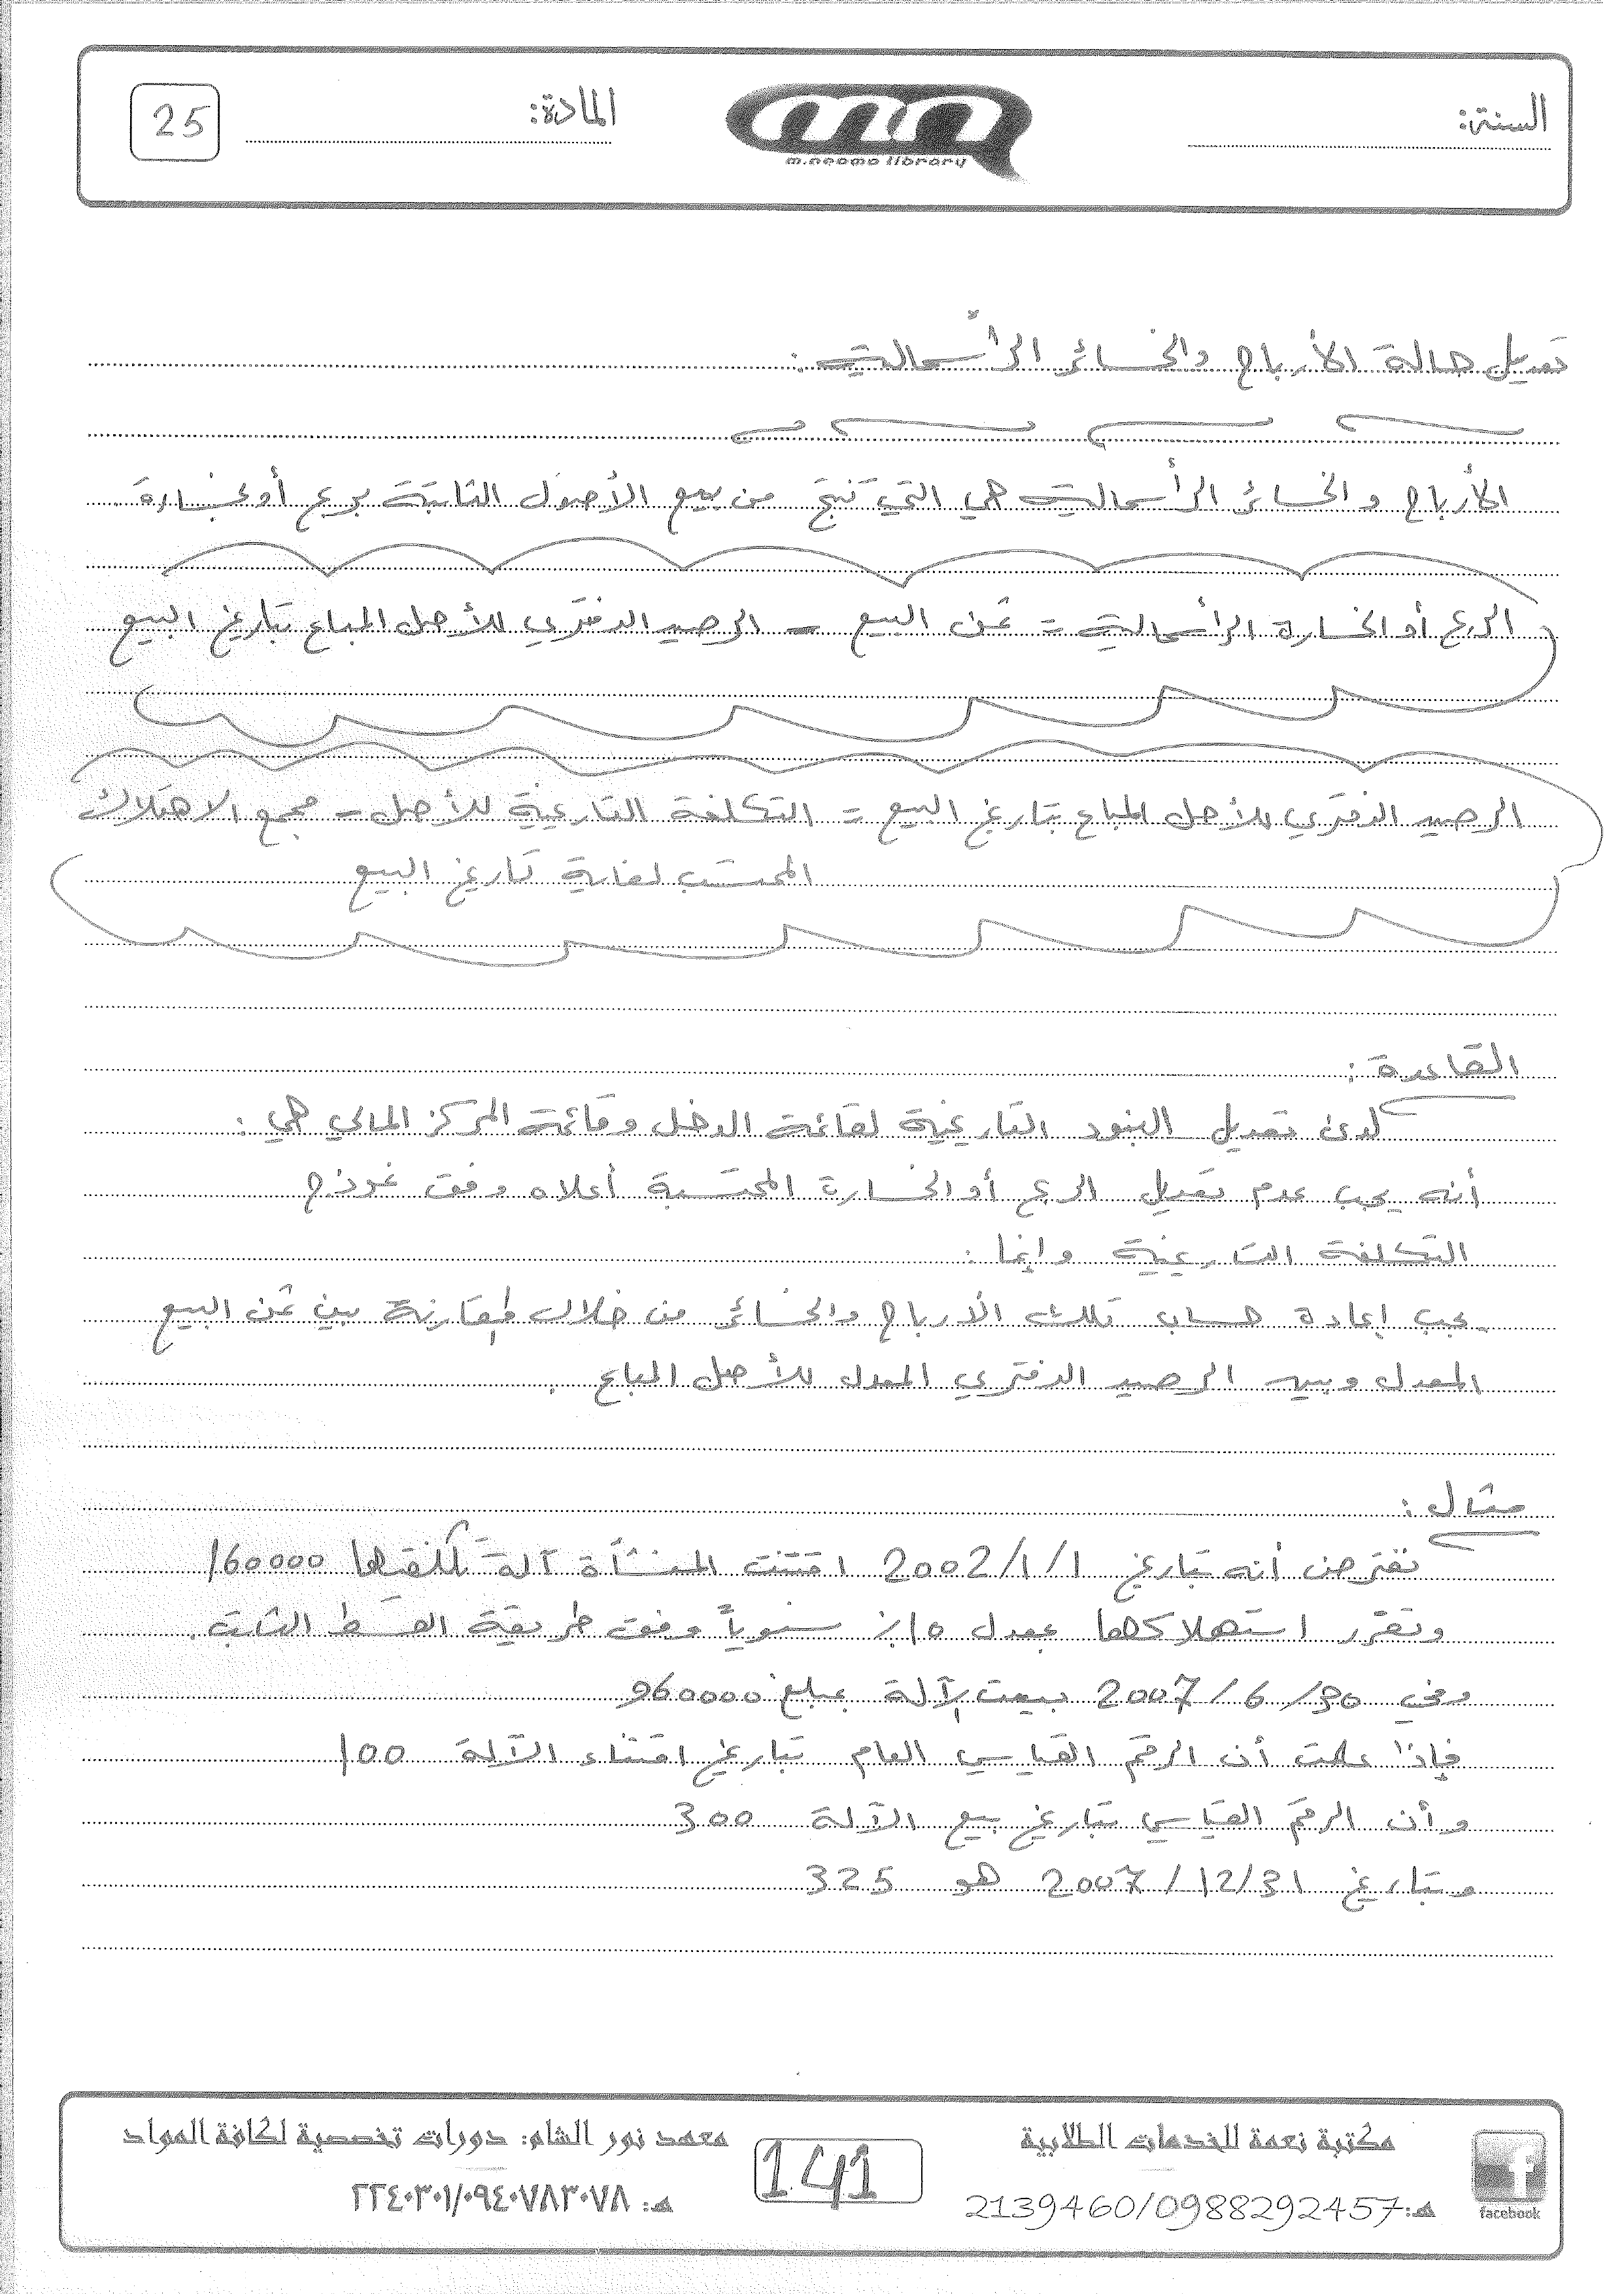 السنة:
m.neama library
المادة:
25
تعديل حالة الأرباح والخسائر الرأسمالية:
الأرباح والخسائر الرأسمالية هي التي تنتج من بيع الأصول الثابتة بربح أو بخسارة.
الربح أو الخسارة الرأسمالية = ثمن البيع - الرصيد الدفتري للأصل المباع بتاريخ البيع
الرصيد الدفتري للأصل المباع بتاريخ البيع = التكلفة التاريخية للأصل - مجمع الاهتلاك
المحتسب لغاية تاريخ البيع
القاعدة:
لدى تعديل البنود التاريخية لقائمة الدخل وقائمة المركز المالي هي:
أنه يجب عدم تعديل الربح أو الخسارة المحتسبة أعلاه وفق نموذج
التكلفة التاريخية وإنما:
يجب إعادة حساب تلك الأرباح والخسائر من خلال مقارنة بين ثمن البيع
المعدل وبين الرصيد الدفتري المعدل للأصل المباع.
مثال:
نفترض أنه بتاريخ 2002/1/1 اقتنت المنشأة آلة تكلفتها 160000
وتقرر استهلاكها بمعدل 10٪ سنوياً وفق طريقة القسط الثابت.
وفي 2007/6/30 بيعت الآلة بمبلغ 960000
فإذا علمت أن الرقم القياسي العام بتاريخ اقتناء الآلة 100
وأن الرقم القياسي بتاريخ بيع الآلة 300
وبتاريخ 2007/12/31 هو 325
مكتبة نعمة للخدمات الطلابية
هـ:2139460/0988292457
facebook
141
معهد نور الشام: دورات تخصصية لكافة المواد
هـ: ٢٢٤٠٣٠١/٠٩٤٠٧٨٣٠٧٨